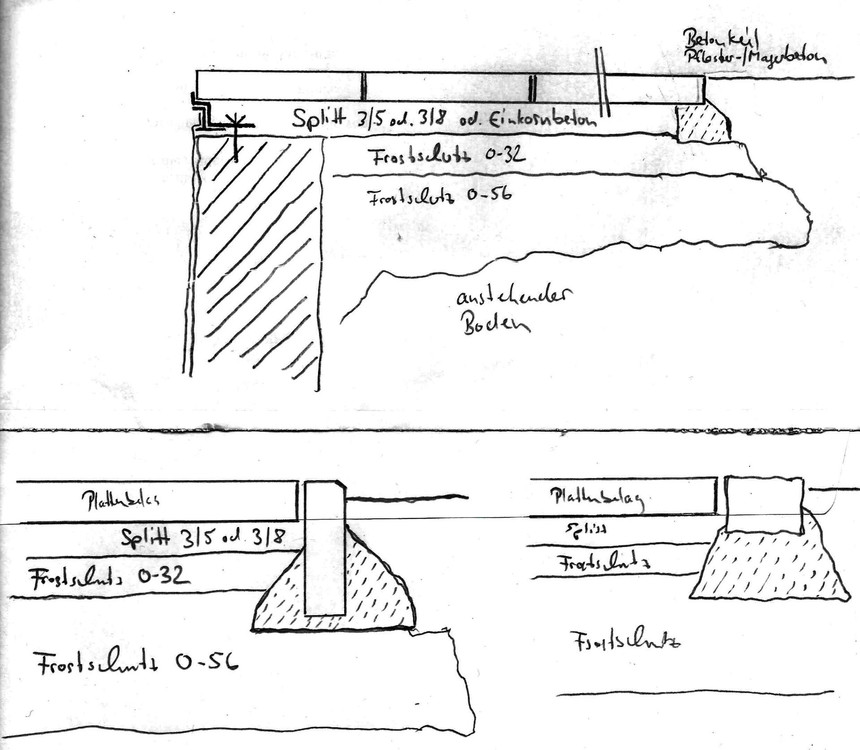 Betonkeil
Pflaster-/Magerbeton
Splitt 3/5 od. 3/8 od. Einkornbeton
Frostschutz 0-32
Frostschutz 0-56
anstehender
Boden
Plattenbelag
Splitt 3/5 od. 3/8
Frostschutz 0-32
Frostschutz 0-56
Plattenbelag
Splitt
Frostschutz
Frostschutz